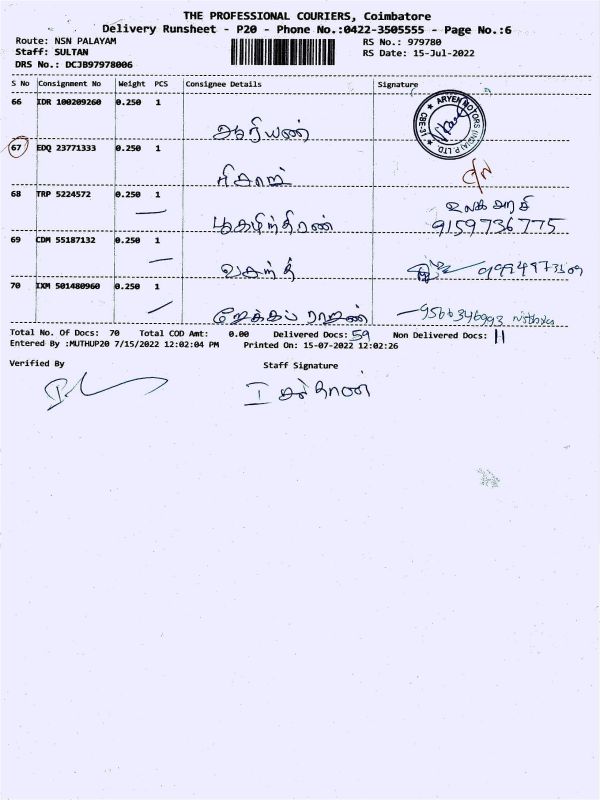 THE PROFESSIONAL COURIERS, Coimbatore
Delivery Runsheet - P20 - Phone No.:0422-3505555 - Page No.:6
Route: NSN PALAYAM
RS No.: 979780
Staff: SULTAN
RS Date: 15-Jul-2022
DRS No.: DCJB97978006
S No Consignment No Weight PCS Consignee Details Signature
66 IDR 100209260 0.250 1
ஆரியன்
ARYEN MOTORS (INDIA) P. LTD. CBE-31
67 EDQ 23771333 0.250 1
68 TRP 5224572 0.250 1
உலக அரசி
9159736775
69 CDM 55187132 0.250 1
வசந்த்
70 IXM 501480960 0.250 1
ஜேக்கப் ராஜன்
Total No. Of Docs: 70 Total COD Amt: 0.00 Delivered Docs: 59 Non Delivered Docs: 11
Entered By :MUTHUP20 7/15/2022 12:02:04 PM Printed On: 15-07-2022 12:02:26
Verified By Staff Signature